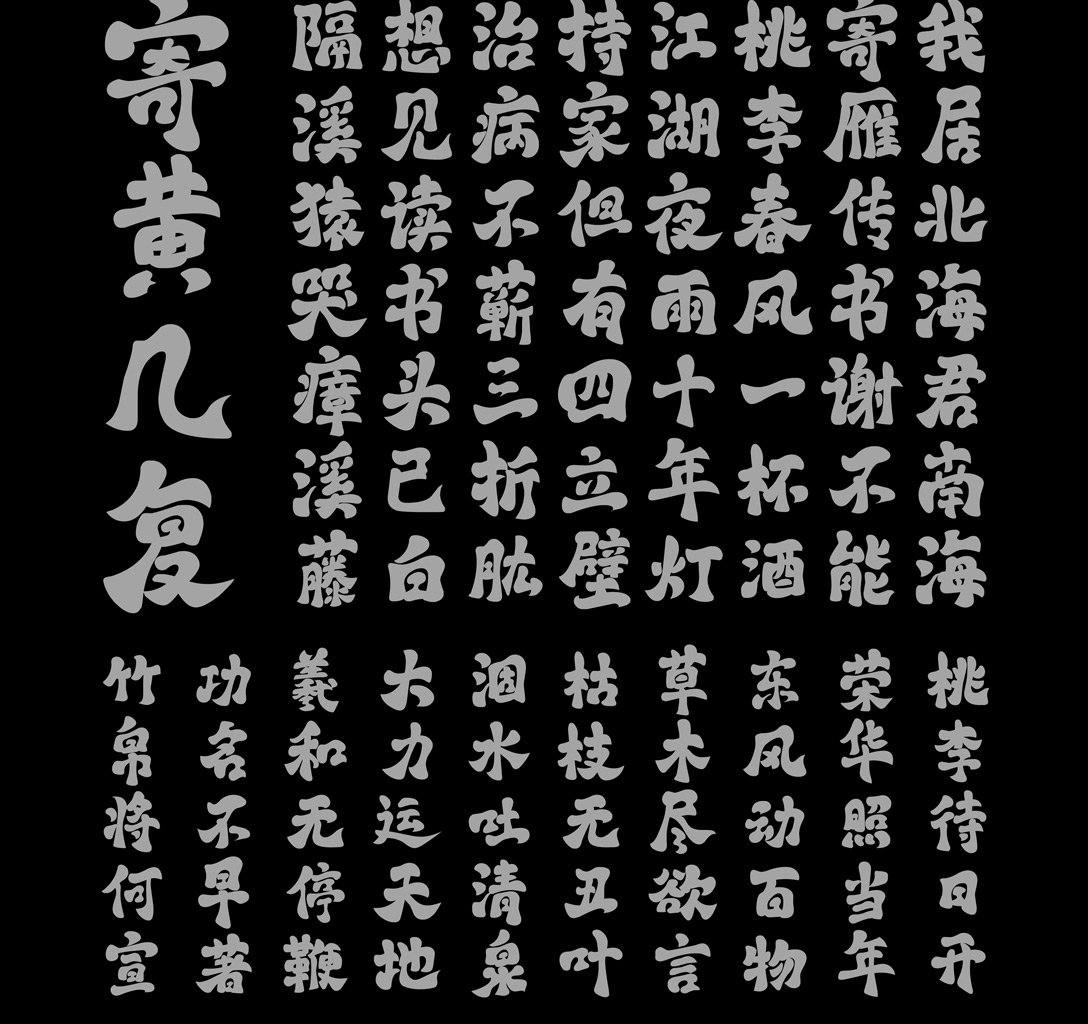 寄黄几复
我居北海君南海
寄雁传书谢不能
桃李春风一杯酒
江湖夜雨十年灯
持家但有四立壁
治病不蕲三折肱
想见读书头已白
隔溪猿哭瘴溪藤
桃李待日开
荣华照当年
东风动百物
草木尽欲言
枯枝无丑叶
涸水吐清泉
大力运天地
羲和无停鞭
功名不早著
竹帛将何宣